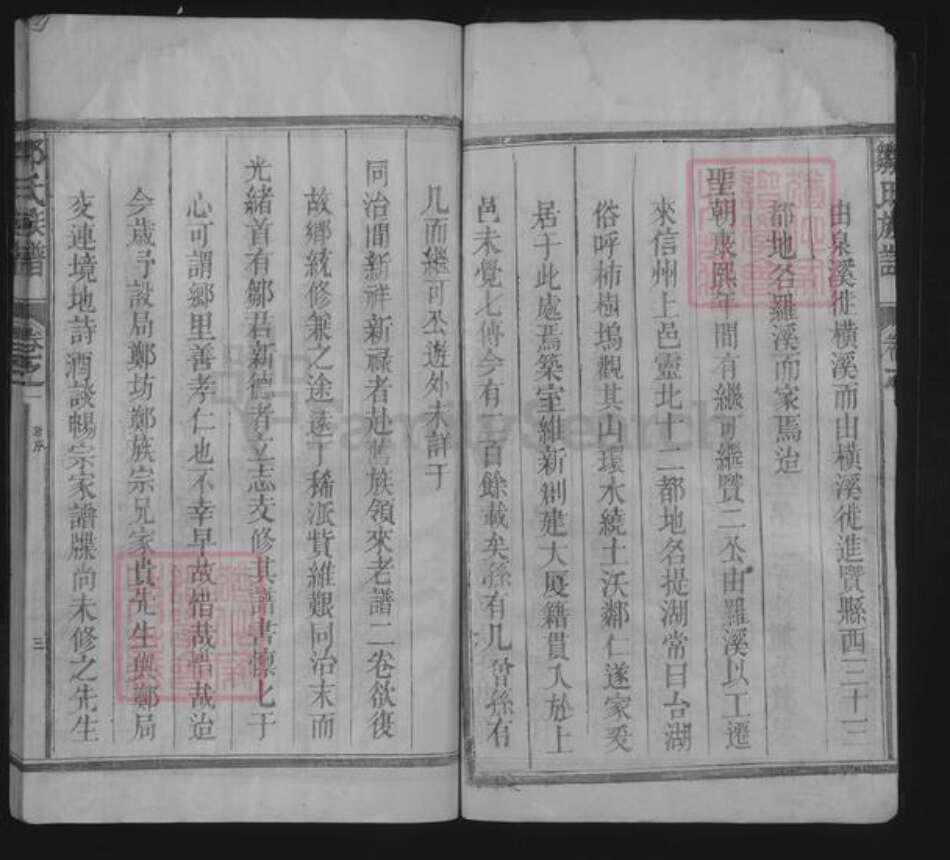 鄒氏族譜
由泉溪徙橫溪而由橫溪徙進賢縣西二十二
都地名羅溪而家焉迨
聖朝康熙年間有繼可繼賢二公由羅溪以工遷
來信州上邑靈北十二都地名提湖常曰台湖
俗呼柿樹塢觀其山環水繞土沃鄰仁遂家爰
居于此處焉築室維新創建大廈籍貫入於上
邑未覺七傳今有二百餘載矣孫有几曾孫有
几而繼可公遊外未詳于
同治間新祥新祿者赴舊族領來老譜二卷欲復
故鄉統修兼之途遠丁稀派費維艱同治末而
光緒首有鄒君新德者立志支修其譜書懷之于
心可謂鄉里善孝仁也不幸早故惜哉惜哉迨
今歲予設局鄭坊鄭族宗兄家貴先生與鄭局
交連境地詩酒談暢宗家譜牒尚未修之先生
氏族譜
三